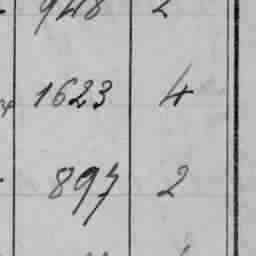 948 2
1623 4
897 2